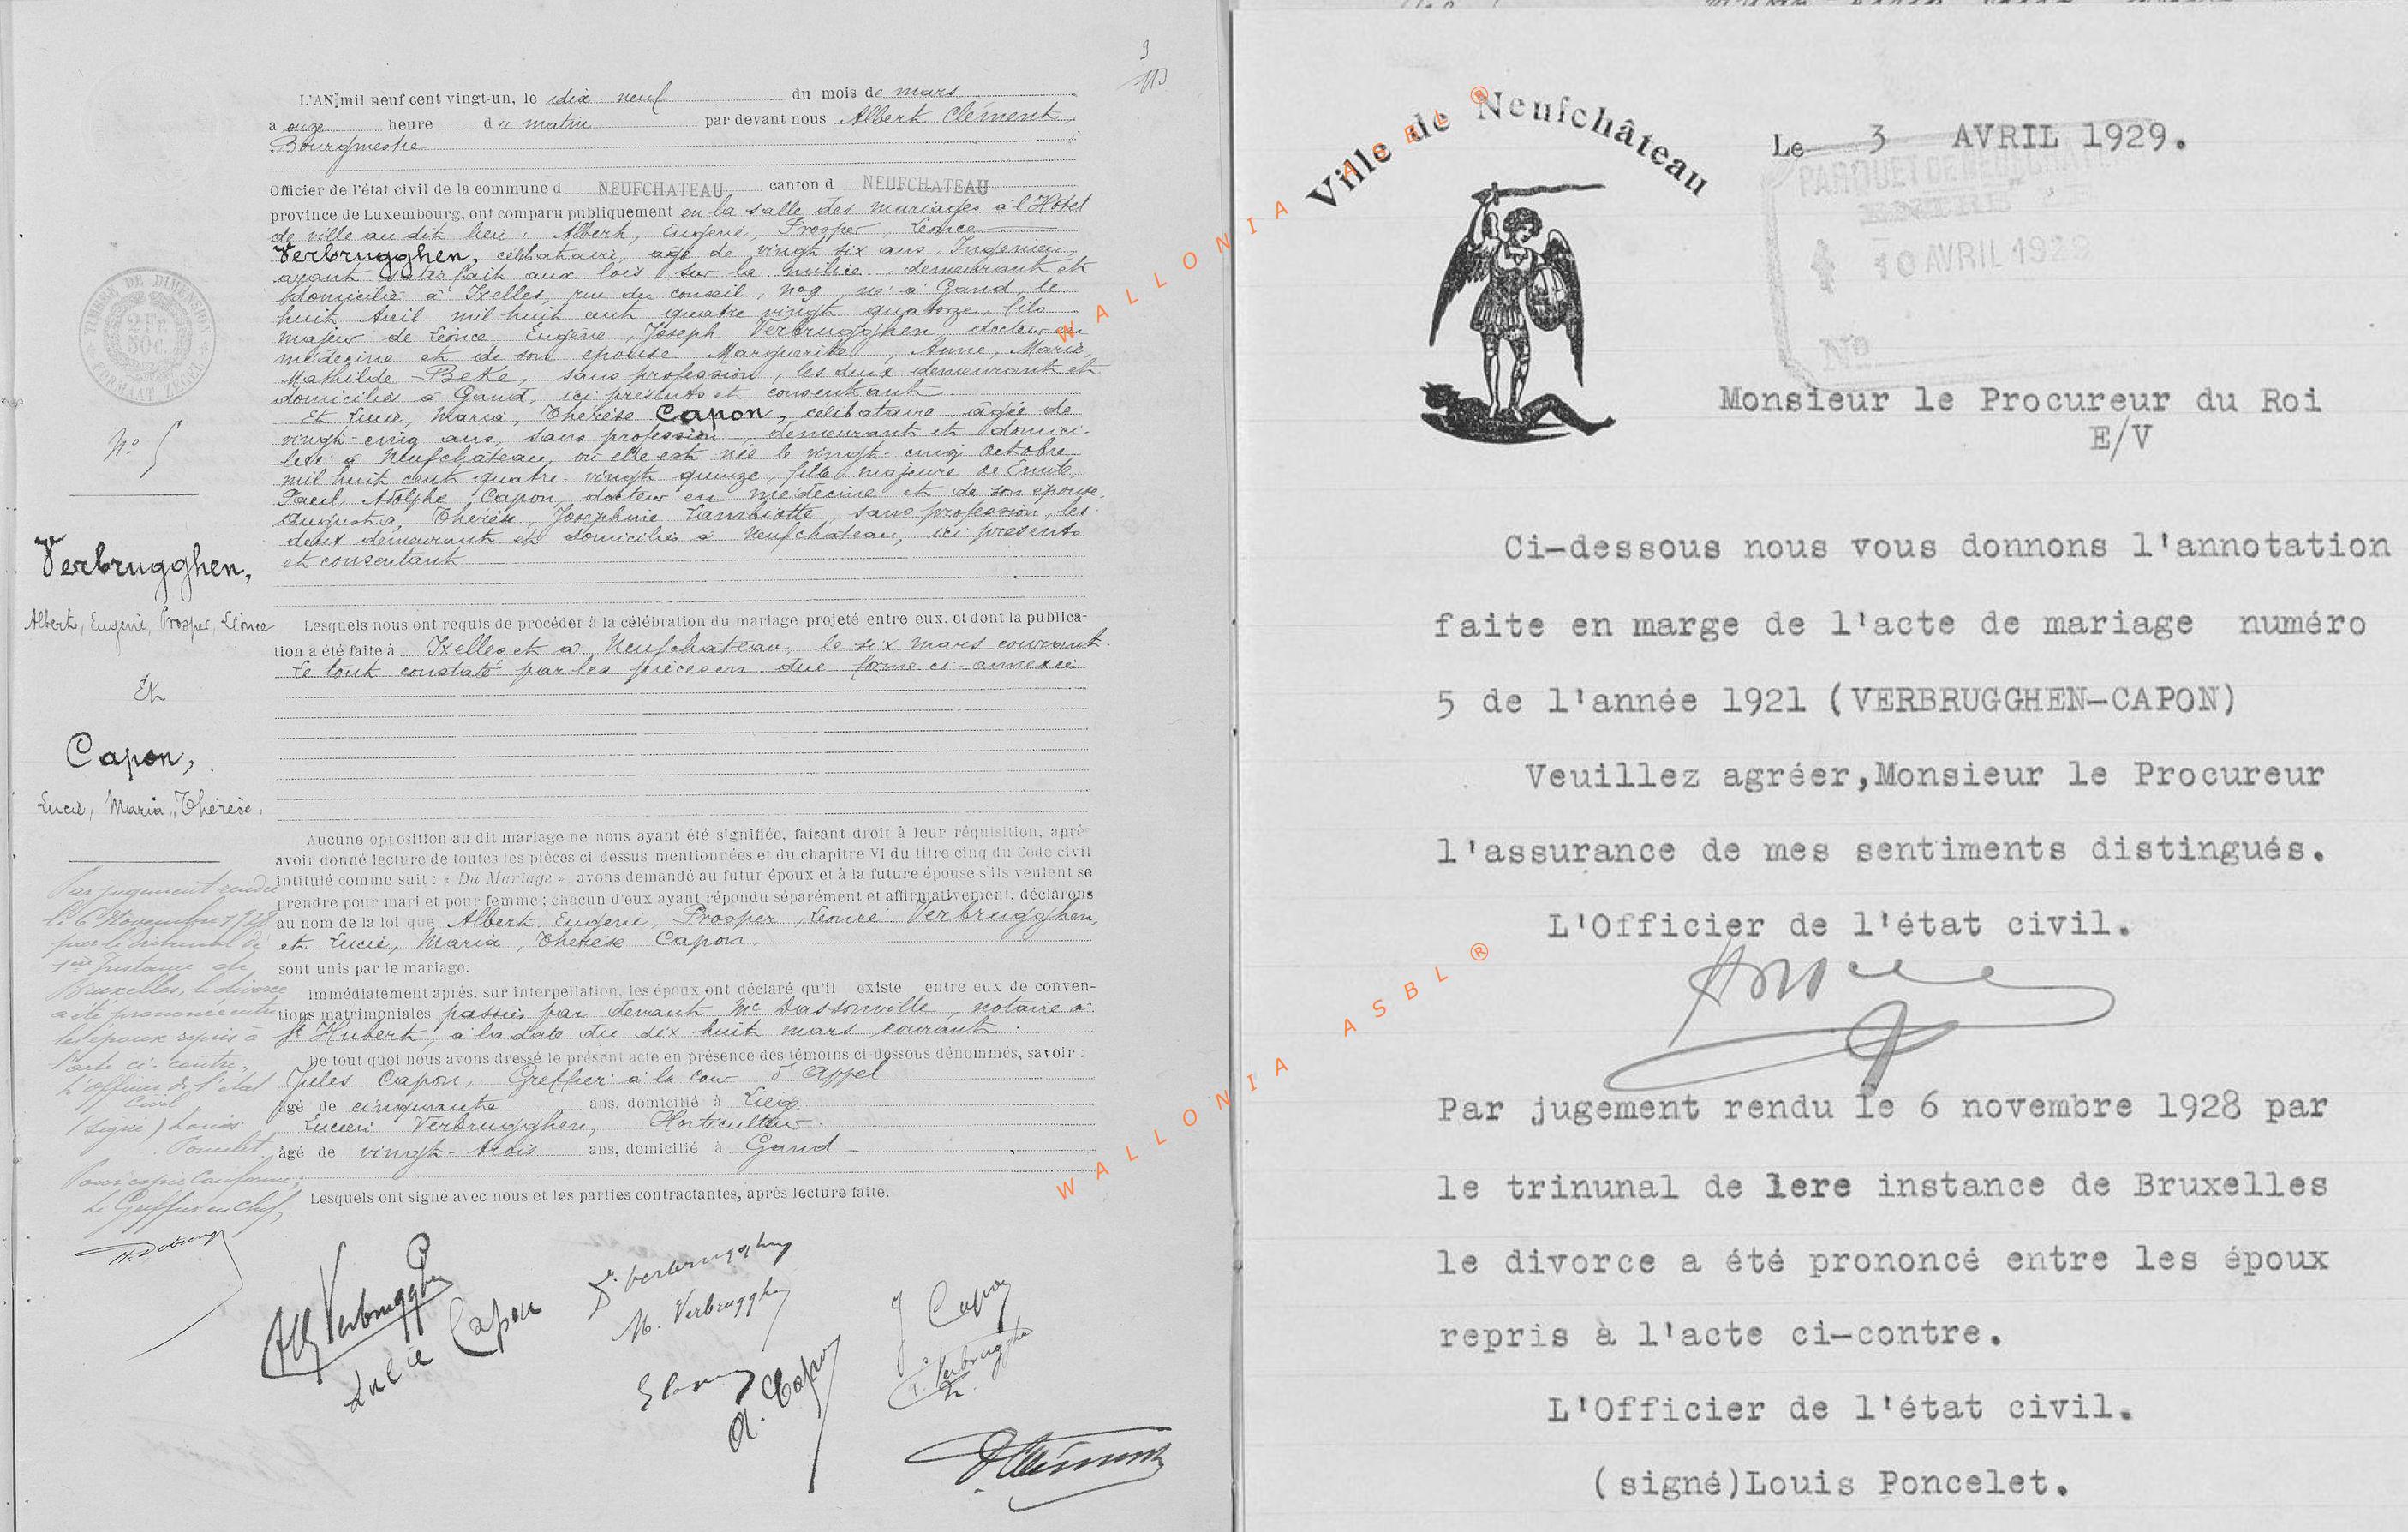 9
113
L'AN mil neuf cent vingt-un, le dix neuf du mois de mars
a onze heure du matin par devant nous Albert Clément,
Bourgmestre
Officier de l'état civil de la commune d NEUFCHATEAU, canton d NEUFCHATEAU
province de Luxembourg, ont comparu publiquement en la salle des mariages à l'Hôtel
de ville au dit lieu, Albert, Eugène, Prosper, Léonce
Verbrugghen, célibataire, âgé de vingt six ans Ingénieur,
ayant satisfait aux lois sur la milice, demeurant et
domicilié à Ixelles, rue du conseil, n° 9, né à Gand, le
huit Avril mil huit cent quatre vingt quatorze, fils
majeur de Léonce, Eugène, Joseph Verbrugghen, docteur en
médecine et de son épouse Marguerite, Anne, Marie,
Mathilde Beke, sans profession, les deux demeurant et
domiciliés à Gand, ici présents et consentant
Et Lucie, Maria, Thérèse Capon, célibataire âgée de
vingt-cinq ans, sans profession, demeurant et domici-
liée à Neufchâteau, où elle est née le vingt-cinq Octobre
mil huit cent quatre-vingt quinze, fille majeure de Emile,
Paul, Adolphe, Capon, docteur en médecine et de son épouse
Augusta, Thérèse, Joséphine Lambiotte, sans profession, les
deux demeurant et domiciliés à Neufchateau, ici présents
et consentant
TIMBRE DE DIMENSION
2 Fr.
50 c.
FORMAAT ZEGEL
N° 5
Verbrugghen,
Albert, Eugène, Prosper, Léonce
Et
Capon,
Lucie, Maria, Thérèse.
Lesquels nous ont requis de procéder à la célébration du mariage projeté entre eux, et dont la publica-
tion a été faite à Ixelles et à Neufchâteau, le six mars courant.
Le tout constaté par les pièces en due forme ci-annexée
Aucune opposition au dit mariage ne nous ayant été signifiée, faisant droit à leur réquisition, après
avoir donné lecture de toutes les pièces ci dessus mentionnées et du chapitre VI du titre cinq du Code civil
intitulé comme suit : « Du Mariage », avons demandé au futur époux et à la future épouse s'ils veulent se
prendre pour mari et pour femme ; chacun d'eux ayant répondu séparément et affirmativement, déclarons
au nom de la loi que Albert, Eugène, Prosper, Léonce Verbrugghen,
et Lucie, Maria, Thérèse Capon.
sont unis par le mariage.
Immédiatement après, sur interpellation, les époux ont déclaré qu'il existe entre eux de conven-
tions matrimoniales passées par devant Me Dassonville, notaire à
St Hubert, à la date du dix huit mars courant.
De tout quoi nous avons dressé le présent acte en présence des témoins ci dessous dénommés, savoir :
Jules Capon, Greffier à la cour d'Appel
âgé de cinquante ans, domicilié à Liège
Lucien Verbrugghen, Horticulteur
âgé de vingt-trois ans, domicilié à Gand
Lesquels ont signé avec nous et les parties contractantes, après lecture faite.
Par jugement rendu
le 6 Novembre 1928
par le tribunal de
1ère Instance de
Bruxelles, le divorce
a été prononcé entre
les époux repris à
l'acte ci-contre.
L'officier de l'état
civil
(signé) Louis
Poncelet
Pour copie conforme;
Le Greffier en Chef,
Alb Verbrugghen
Lucie Capon
Dr Verbrugghen
M. Verbrugghen
A. Capon
J Capon
L. Verbrugghen
A Clément
WALLONIA ASBL ®
WALLONIA ASBL ®
Ville de Neufchâteau
Le 3 AVRIL 1929.
PARQUET DE NEUFCHATEAU
10 AVRIL 1929
N°
Monsieur le Procureur du Roi
E/V
Ci-dessous nous vous donnons l'annotation
faite en marge de l'acte de mariage numéro
5 de l'année 1921 (VERBRUGGHEN-CAPON)
Veuillez agréer,Monsieur le Procureur
l'assurance de mes sentiments distingués.
L'Officier de l'état civil.
Par jugement rendu le 6 novembre 1928 par
le trinunal de 1ere instance de Bruxelles
le divorce a été prononcé entre les époux
repris à l'acte ci-contre.
L'Officier de l'état civil.
(signé)Louis Poncelet.